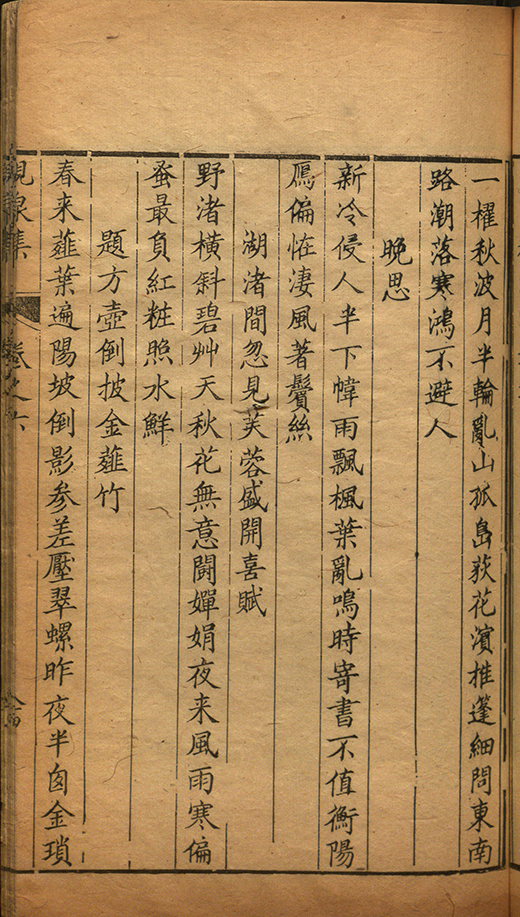 一櫂秋波月半輪亂山孤島荻花濱推篷細問東南
路潮落寒鴻不避人
晚思
新冷侵人半下幃雨飄楓葉亂鳴時寄書不值衡陽
鴈偏恠淒風著鬢絲
湖渚間忽見芙蓉盛開喜賦
野渚橫斜碧艸天秋花無意鬪嬋娟夜来風雨寒偏
蚤最負紅粧照水鮮
題方壺倒披金薤竹
春来薤葉遍陽坡倒影參差壓翠螺昨夜半囱金瑣
卷之六